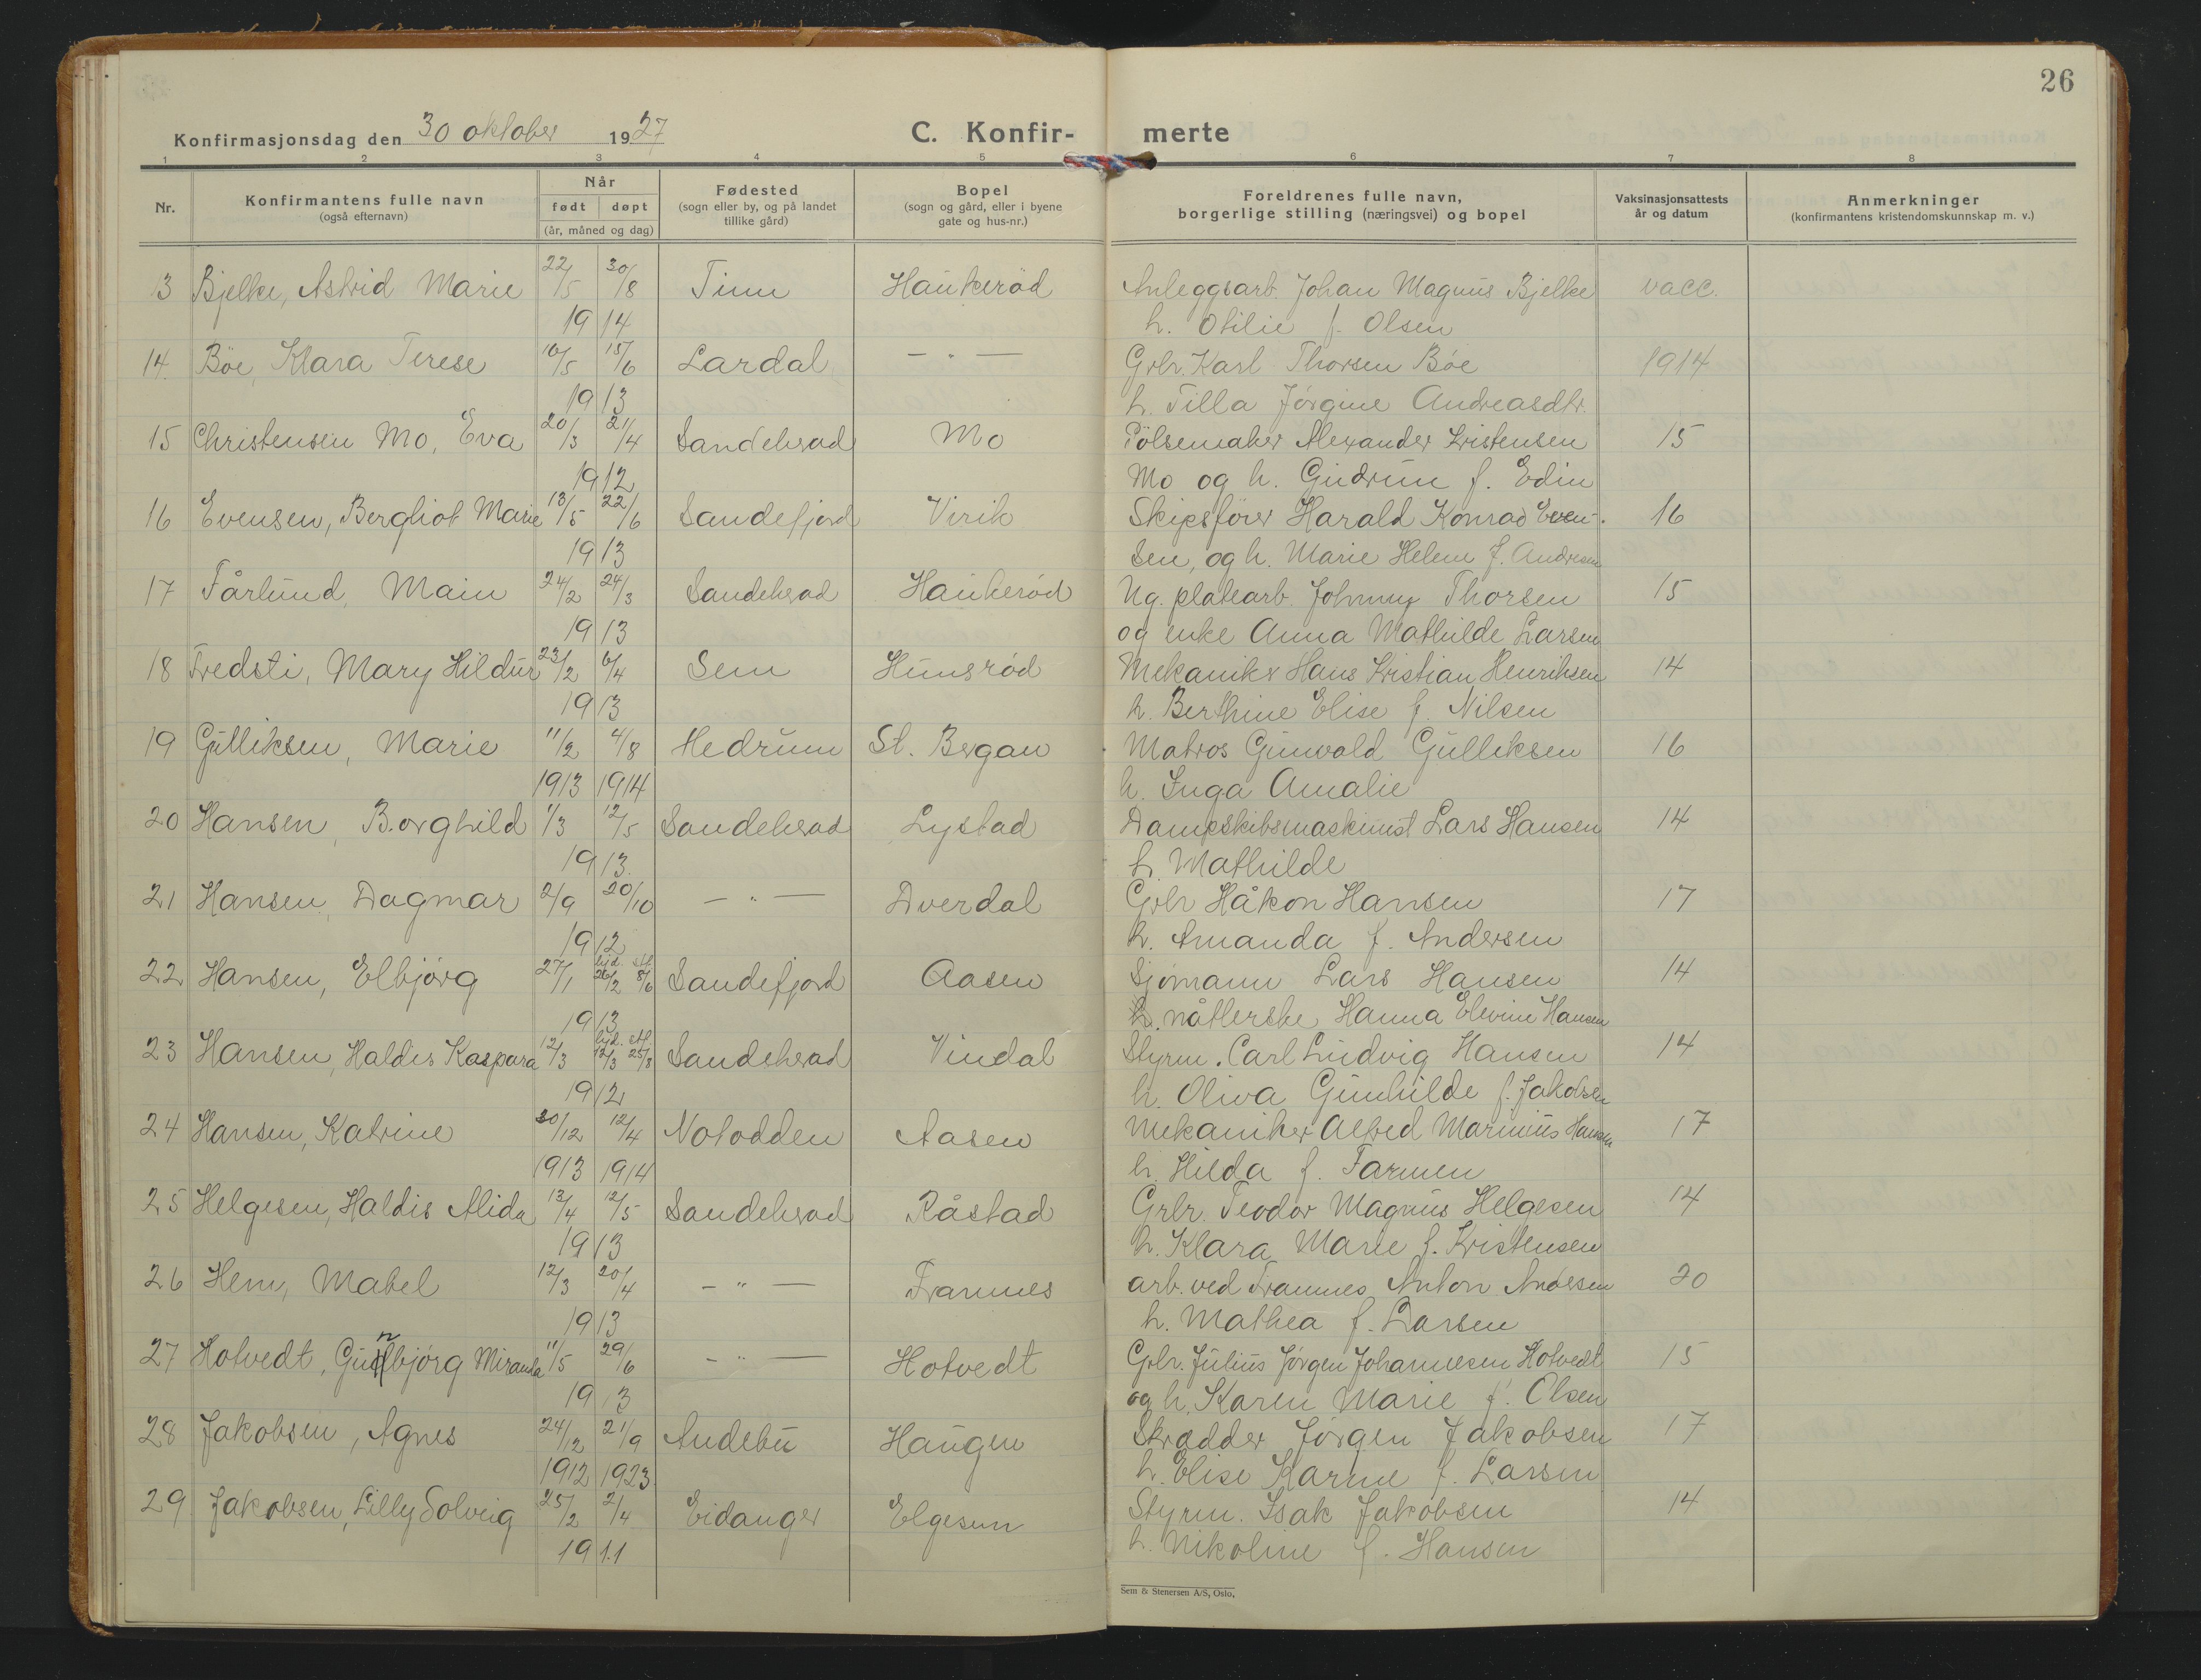 26
Konfirmasjonsdag den 30 oktober 1927
C. Konfir- merte
1 2 3 4 5 6 7 8
Nr.
Konfirmantens fulle navn
(også efternavn)
Når
født døpt
(år, måned og dag)
Fødested
(sogn eller by, og på landet
tillike gård)
Bopel
(sogn og gård, eller i byene
gate og hus-nr.)
Foreldrenes fulle navn,
borgerlige stilling (næringsvei) og bopel
Vaksinasjonsattests
år og datum
Anmerkninger
(konfirmantens kristendomskunnskap m. v.)
13 Bjelke, Astrid Marie 22/5 30/8 Tinn Haukerød Anleggsarb. Johan Magnus Bjelke vacc.
1914 h. Otilie f. Olsen
14. Böe, Klara Terese 16/5 15/6 Lardal — " — Grbr. Karl Thorsen Böe 1914
1913 h. Tilla Jörgine Andreasdtr.
15 Christensen Mo, Eva 20/3 21/4 Sandeherad Mo Pölsemaker Alexander Kristensen 15
1912 Mo og h. Gudrun f. Edin
16 Evensen, Bergliot Marie 13/5 22/6 Sandefjord Virik Skipsfører Harald Konrad Even- 16
1913 sen, og h. Marie Helene f. Andresen
17 Fårlund, Main 24/2 24/3 Sandeherad Haukerød Ug. platearb. Johnny Thorsen 15
1913 og enke Anna Mathilde Larsen
18 Fredsti, Mary Hildur 23/2 6/4 Sem Hunsrød Mekaniker Hans Kristian Henriksen 14
1913 h. Berthine Elise f. Nilsen
19 Gulliksen, Marie 11/2 4/8 Hedrum St. Bergan Matros Gunvald Gulliksen 16
1913 1914 h. Inga Amalie
20 Hansen, Borghild 1/3 12/5 Sandeherad Lystad Dampskibsmaskinist Lars Hansen 14
1913. h. Mathilde
21 Hansen, Dagmar 2/9 20/10 — " — Dverdal Grbr Håkon Hansen 17
1912 h. Amanda f. Andersen
22 Hansen, Elbjörg 27/1 hjd. 26/2 stf. 8/6 Sandefjord Aasen Sjömann Lars Hansen 14
1913 h. nåtlerske Hanna Elevine Hansen
23 Hansen, Haldis Kaspara 12/3 hjd. 12/3 stf. 25/8 Sandeherad Vindal Styrm. Carl Ludvig Hansen 14
1912 h. Oliva Gunhilde f. Jakobsen
24 Hansen, Katrine 30/12 12/4 Notodden Aasen Mekaniker Alfred Marinius Hansen 17
1913 1914 h. Hilda f. Farmen
25 Helgesen, Haldis Alida 13/4 12/5 Sandeherad Råstad Grbr. Teodor Magnus Helgesen 14
1913 h. Klara Marie f. Kristensen
26 Hem, Mabel 12/3 20/4 — " — Framnes arb. ved Framnes Anton Andersen 20
1913 h. Mathea f. Larsen
27 Hotvedt, Gunbjörg Miranda 11/5 29/6 — " — Hotvedt Grbr. Julius Jörgen Johannesen Hotvedt 15
1913 og h. Karen Marie f. Olsen
28 Jakobsen, Agnes 24/12 21/9 Andebu Haugen Skrædder Jörgen Jakobsen 17
1912 1923 h. Elise Karine f. Larsen
29 Jakobsen, Lilly Solveig 25/2 2/4 Eidanger Elgesem Styrm. Isak Jakobsen 14
1911 h. Nikoline f. Hansen
Sem & Stenersen A/S, Oslo.